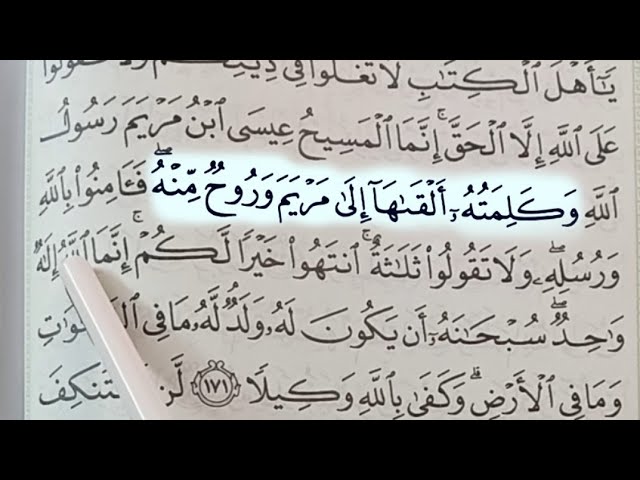 يَٰٓأَهۡلَ ٱلۡكِتَٰبِ لَا تَغۡلُواْ فِي دِينِكُمۡ وَلَا تَقُولُواْ
عَلَى ٱللَّهِ إِلَّا ٱلۡحَقَّۚ إِنَّمَا ٱلۡمَسِيحُ عِيسَى ٱبۡنُ مَرۡيَمَ رَسُولُ
ٱللَّهِ وَكَلِمَتُهُۥٓ أَلۡقَىٰهَآ إِلَىٰ مَرۡيَمَ وَرُوحٞ مِّنۡهُۖ فَـَٔامِنُواْ بِٱللَّهِ
وَرُسُلِهِۦۖ وَلَا تَقُولُواْ ثَلَٰثَةٌۚ ٱنتَهُواْ خَيۡرٗا لَّكُمۡۚ إِنَّمَا ٱللَّهُ إِلَٰهٞ
وَٰحِدٞۖ سُبۡحَٰنَهُۥٓ أَن يَكُونَ لَهُۥ وَلَدٞۘ لَّهُۥ مَا فِي
وَمَا فِي ٱلۡأَرۡضِۗ وَكَفَىٰ بِٱللَّهِ وَكِيلٗا ١٧١ لَّن